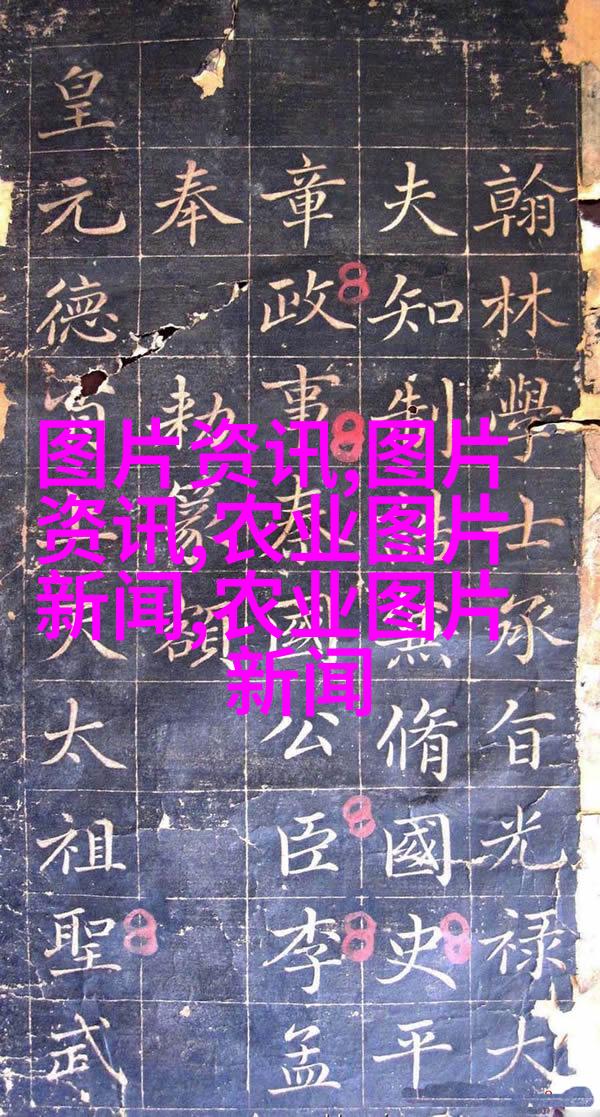 翰林學士承旨光禄大
夫知制兼脩國史平
章政事秦國公臣李孟
奉勅額
皇元德太祖聖武
图片资讯,图片
资讯,农业图片
新闻,农业图片
新闻